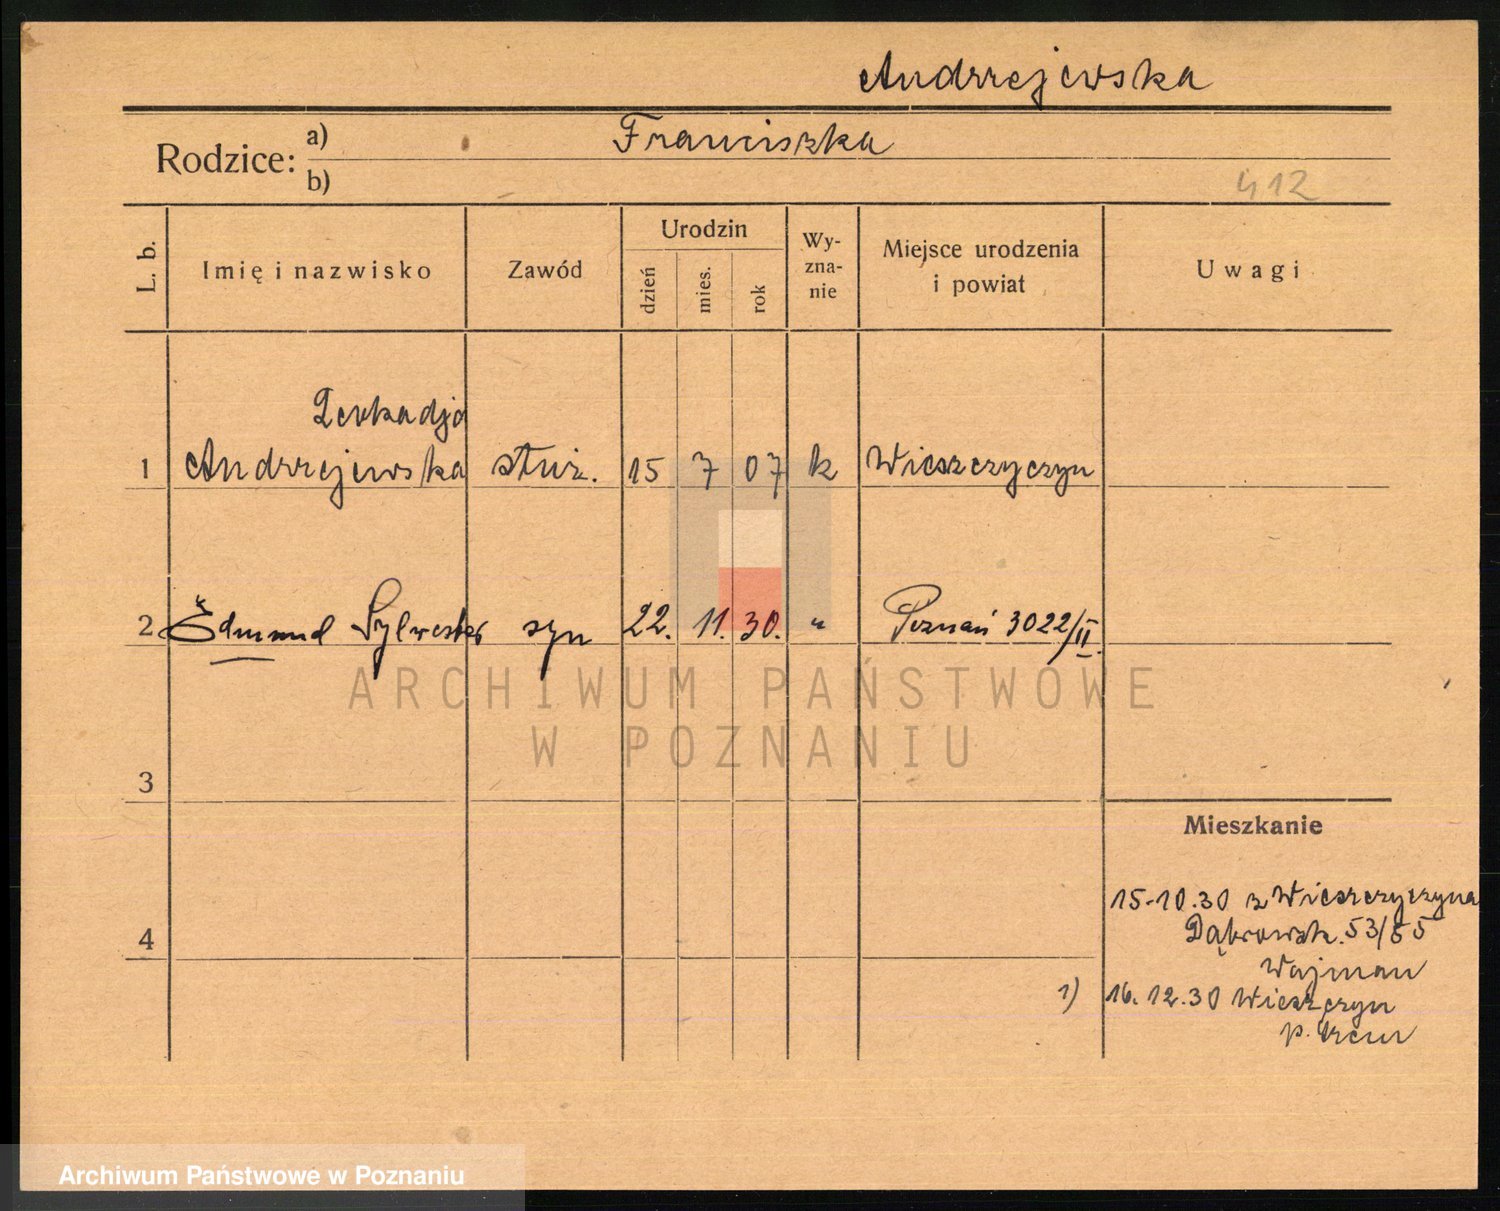 Andrzejewska
Rodzice: a) Franciszka
b)
412
L. b.
Imię i nazwisko
Zawód
Urodzin
dzień
mies.
rok
Wy-
zna-
nie
Miejsce urodzenia
i powiat
Uwagi
Leokadja
1 Andrzejewska służ. 15 7 07 k Wieszczyczyn
2 Edmund Sylwester syn 22. 11. 30. " Poznań 3022/II.
ARCHIWUM PAŃSTWOWE
W POZNANIU
3
Mieszkanie
15-10.30 z Wieszczyczyna
4
Dąbrowsk. 53/55
Wajman
1) 16. 12.30 Wieszczyn
p. Śrem
Archiwum Państwowe w Poznaniu